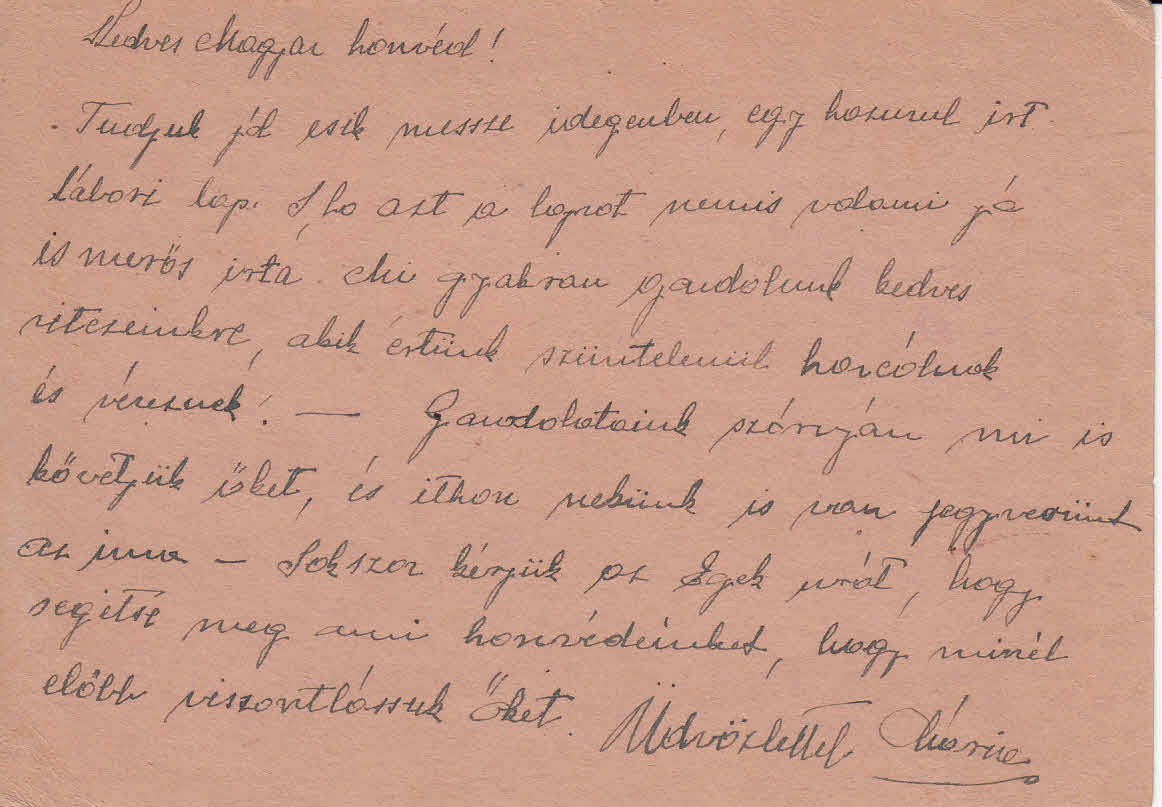 Kedves Magyar honvéd!
Tudjuk jól esik messze idegenben, egy hazurul irt
tábori lap. S ha azt a lapot nemis valami jó
is merős irta. Mi gyakran gondolunk kedves
vitezeinkre, akik értünk szüntelenül harcólnak
és véreznek! — Gondolataink szárnyán mi is
kővetjük őket, és ithon nekünk is van fegyverünk
az ima — Sokszor kérjük az Egek urát, hogy
segitse meg ami honvédeinket, hogy minél
előbb viszontlássuk őket. Üdvözlettel